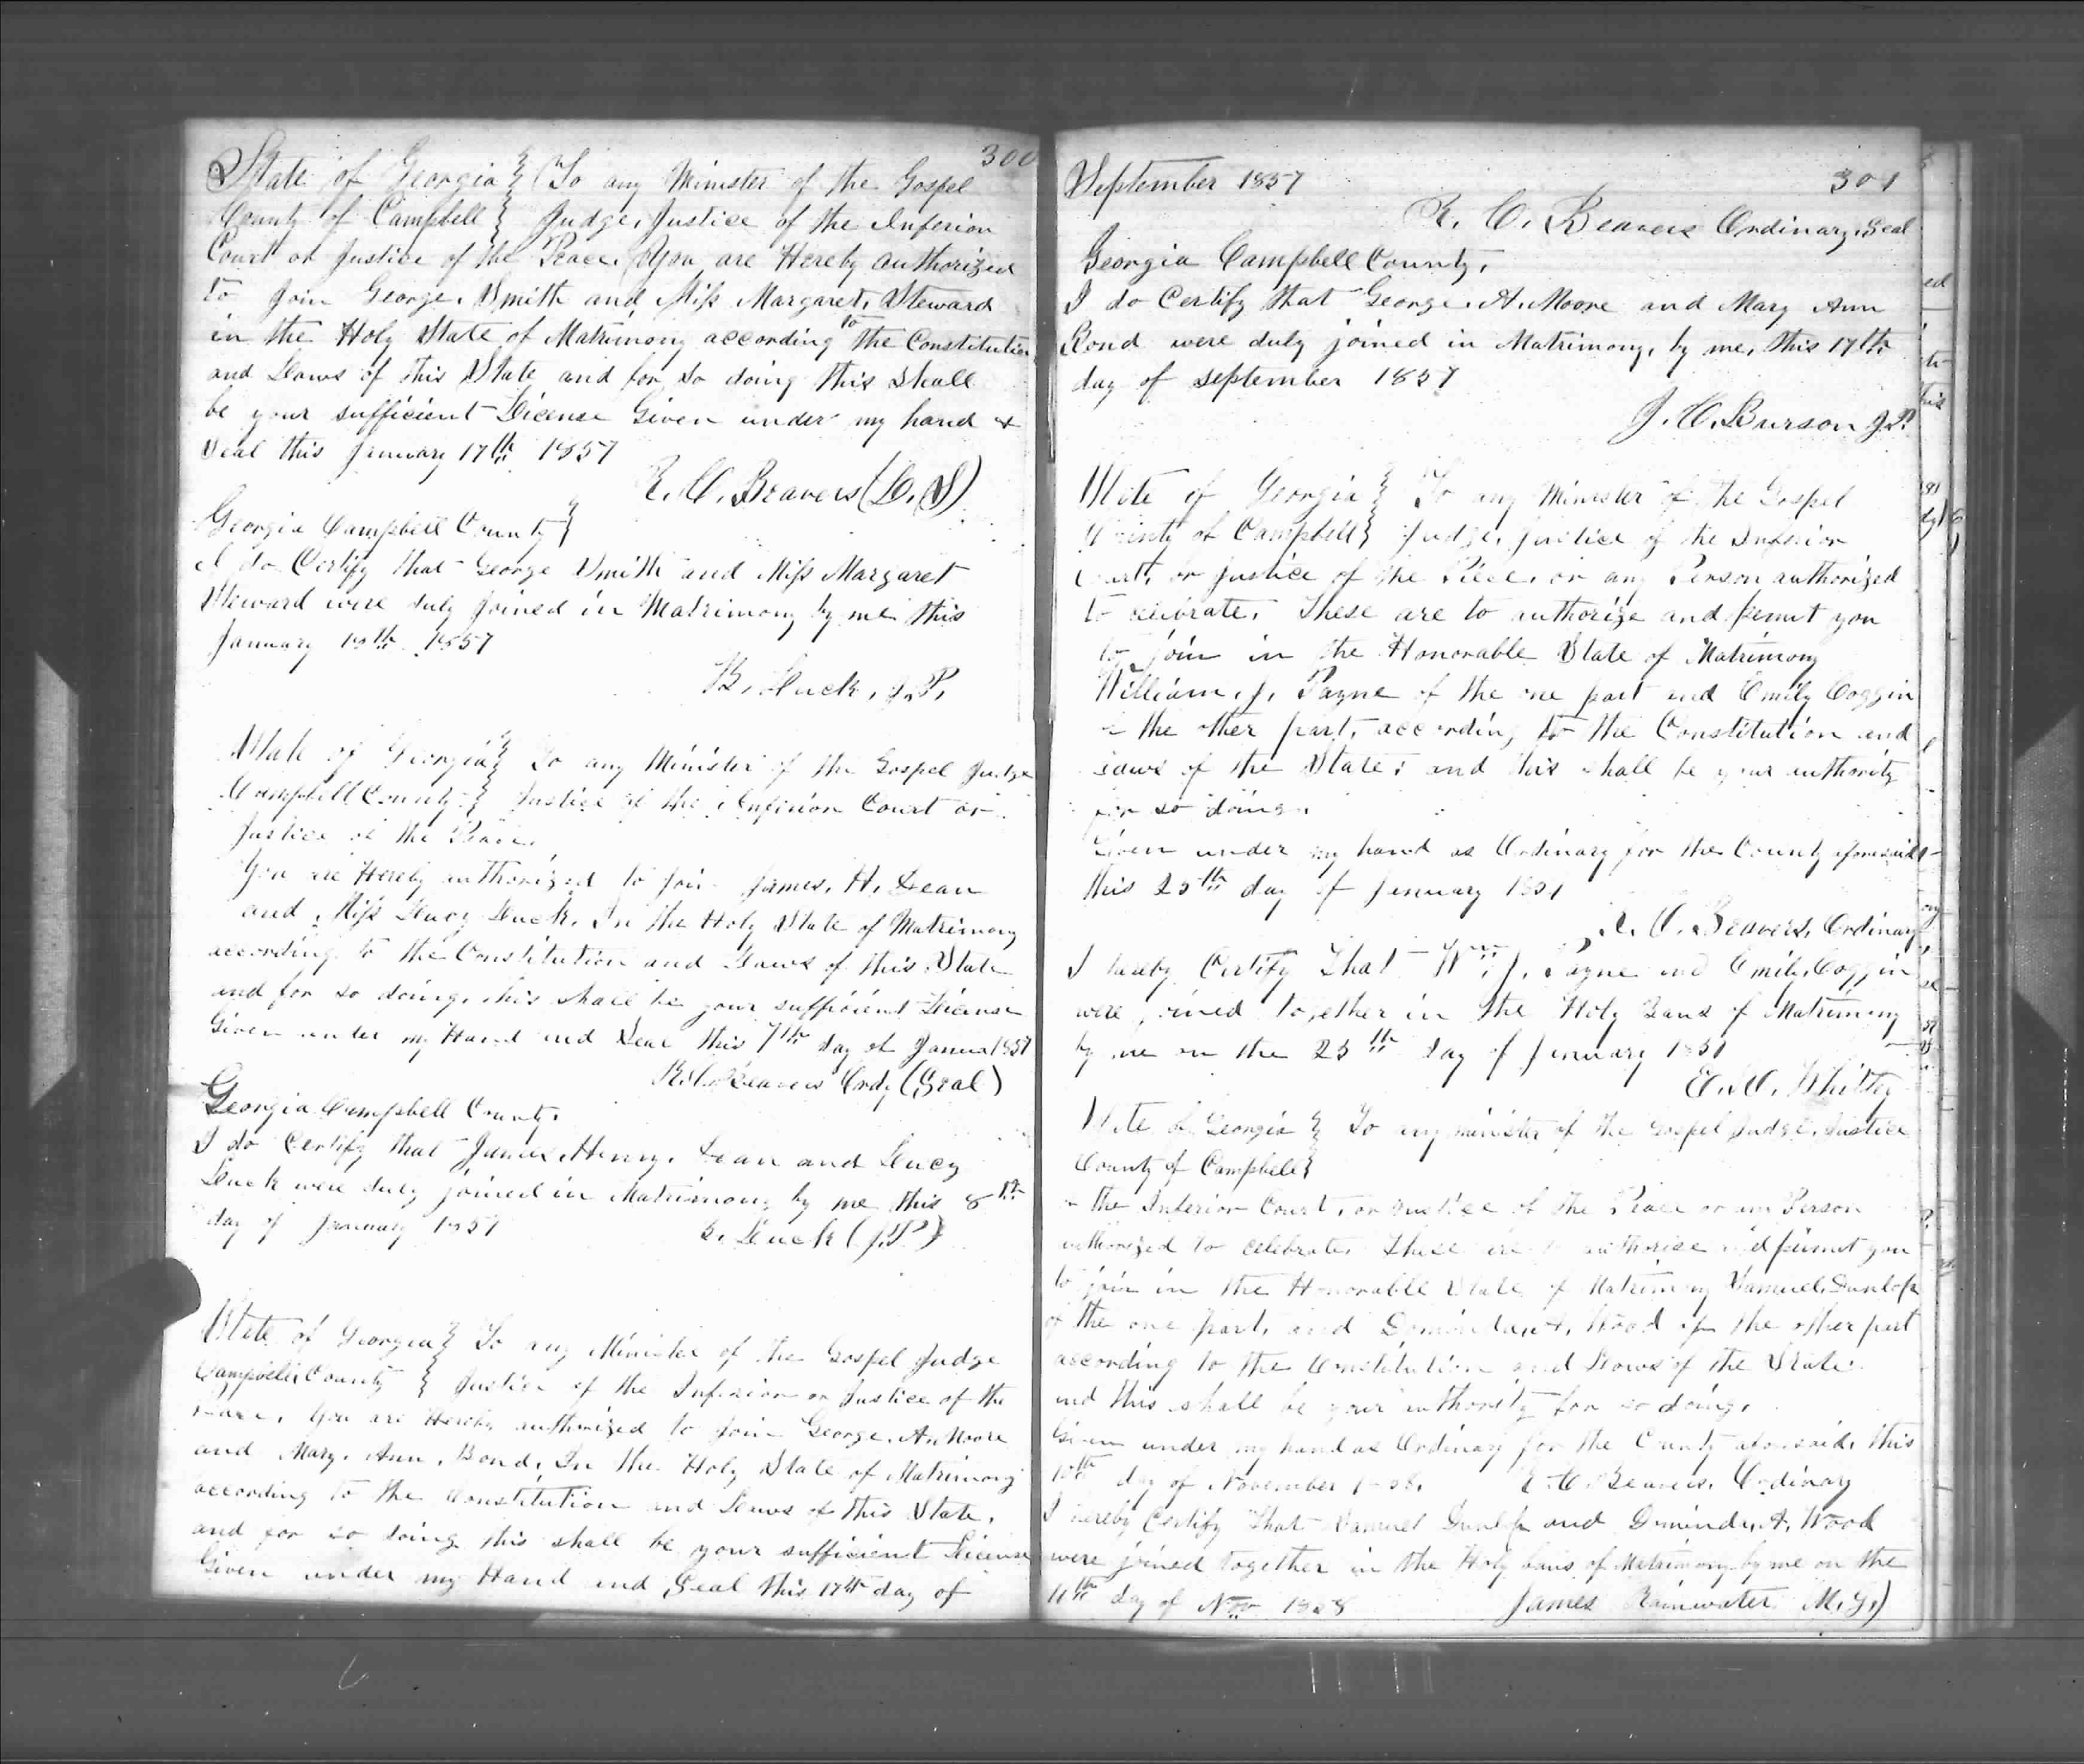 300
State of Georgia } To any Minister of the Gospel
County of Campbell } Judge, Justice of the Inferior
Court or Justice of the Peace. You are Hereby authorized
to join George. Smith and Miss Margaret. Steward
in the Holy State of Matrimony according to the Constitution
and Laws of this State and for so doing this shall
be your sufficient License Given under my hand &
Seal this January 17th 1857
R. C. Beavers (L. S)
Georgia Campbell County }
I do Certify that George Smith and Miss Margaret
Steward were duly joined in Matrimony by me this
January 18th 1857
B. Huck, J.P.
State of Georgia } To any Minister of the Gospel Judge
Campbell County } Justice of the Inferior Court or
Justice of the Peace.
You are Hereby authorized to join James. H.
and Miss Lucy In the Holy State of Matrimony
according to the Constitution and Laws of this State
and for so doing, this shall be your sufficient License
Given under my Hand and Seal this 7th day of Janua 1857
R.C. Beavers Ordy (Seal)
Georgia Campbell County.
I do Certify that James Henry. and Lucy
were duly joined in Matrimony by me this 8th
day of January 1857
(J.P.)
State of Georgia } To any Minister of the Gospel Judge
Campbell County } Justice of the Inferior or Justice of the
Peace, You are Hereby authorized to join George. A. Moore
and Mary. Ann. Bond. In the Holy State of Matrimony
according to the Constitution and Laws of this State,
and for so doing this shall be your sufficient License
Given under my Hand and Seal this 17th day of
September 1857 301
R. C. Beavers Ordinary, Seal
Georgia Campbell County,
I do Certify that George. A. Moore and Mary Ann
Bond were duly joined in Matrimony, by me, this 17th
day of September 1857
J. C. Burson J.P.
State of Georgia } To any Minister of the Gospel
County of Campbell } Judge, Justice of the Inferior
Court, or Justice of the Peace, or any Person authorized
to celibrate, These are to authorize and permit you
to join in the Honorable State of Matrimony
William. J. Payne of the one part and Emily Coggin
of the other part, according to the Constitution and
Laws of the State; and this shall be your authority
for so doing.
Given under my hand as Ordinary for the County aforesaid
this 25th day of January
R. C. Beavers, Ordinary
I hereby Certify That Wm J. Payne and Emily Coggin
were joined together in the Holy Bans of Matrimony
by me on the 25th day of January
State of Georgia } To any minister of the Gospel Judge, Justice
County of Campbell }
of the Inferior Court, or Justice of the Peace or any Person
authorized to celebrate, These are to authorise and permit you
to join in the Honorable State of Matrimony Samuel. Dunlop
of the one part, and Wood of the other part
according to the Constitution and Laws of the State
and this shall be your authority for so doing.
Given under my hand as Ordinary for the County aforesaid, this
10th day of November R. C. Beavers, Ordinary
I hereby Certify That Samuel Dunlop and A. Wood
were joined together in the Holy bans of Matrimony by me on the
11th day of Nov 1858 James Rainwater M.G.)